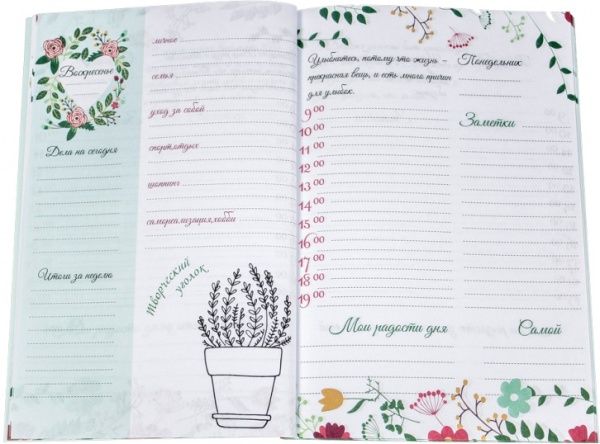 Воскресенье
Дела на сегодня
Итоги за неделю
личное
семья
уход за собой
спорт,отдых
шоппинг
самореализация,хобби
творческий
уголок
Улыбнитесь, потому что жизнь -
прекрасная вещь, и есть много причин
для улыбок.
9 00
10 00
11 00
12 00
13 00
14 00
15 00
16 00
17 00
18 00
19 00
Мои радости дня
Понедельник
Заметки
Самой